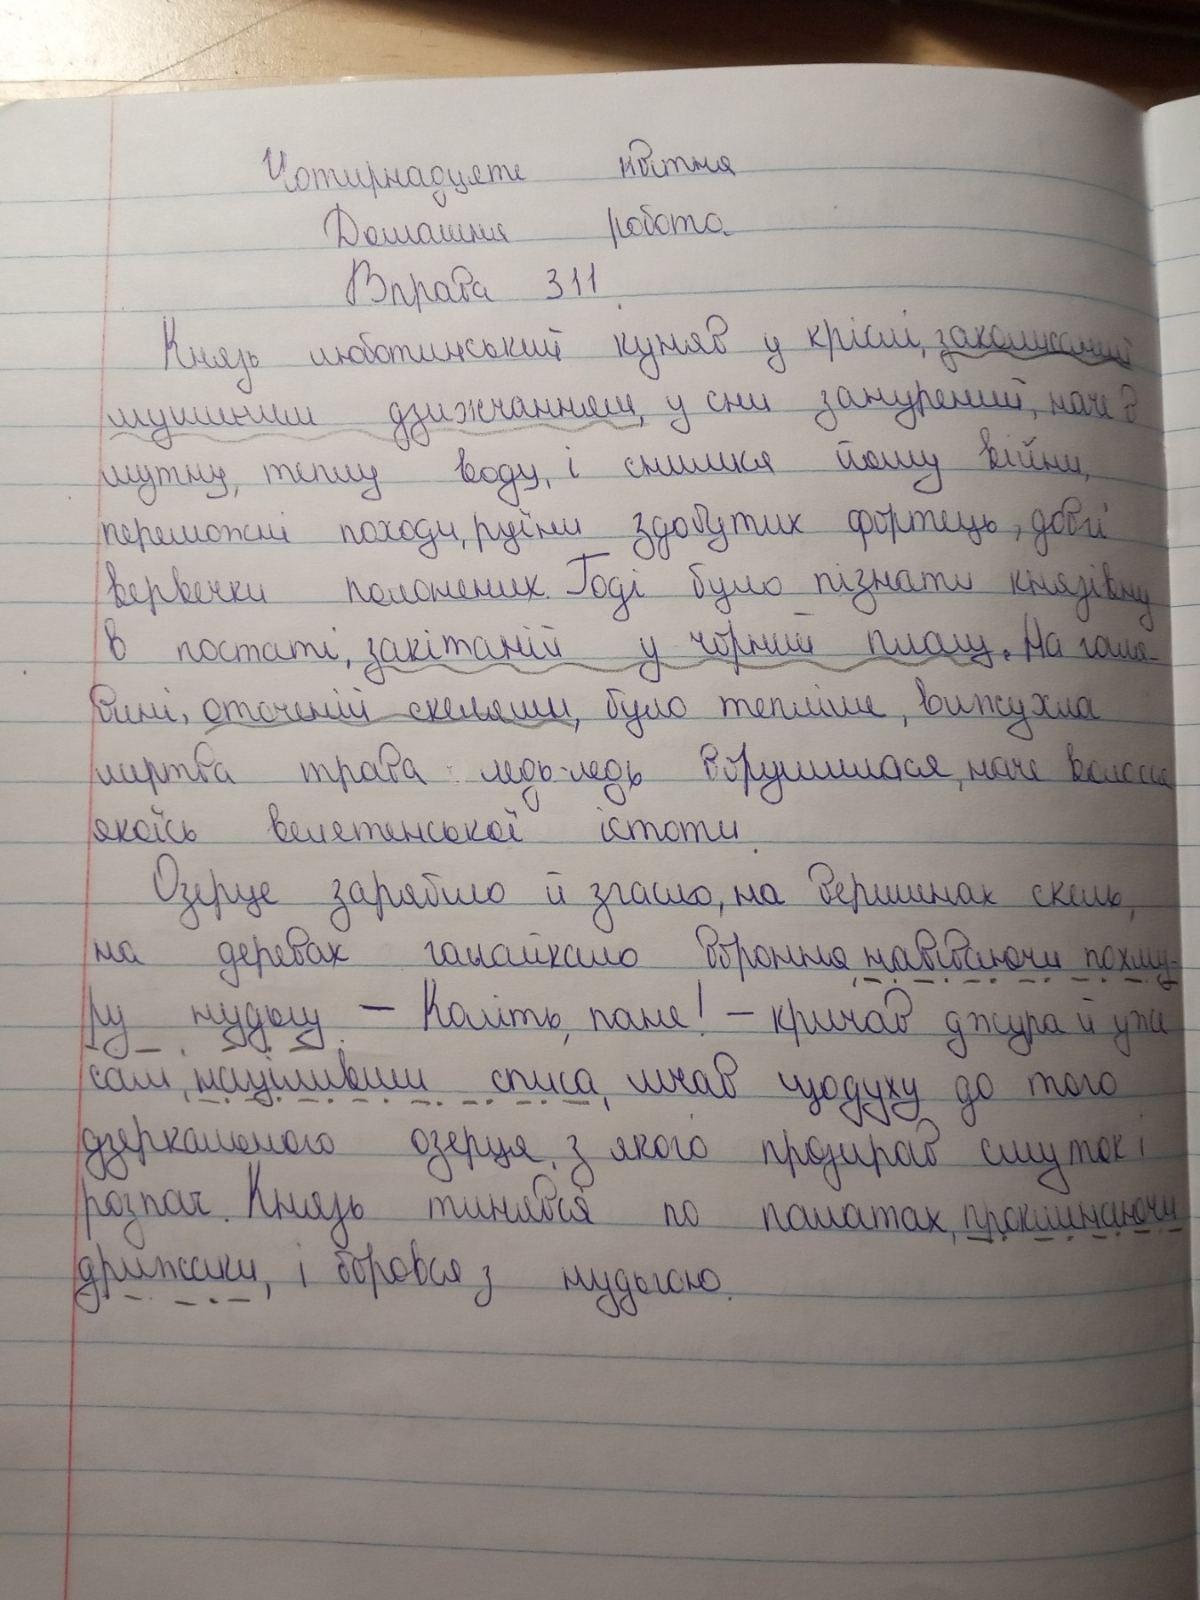 Чотирнадцяте квітня
Домашня робота
Вправа 311.
Князь люботинський куняв у кріслі, заколисаний
мушиним дзижчанням, у сни занурений, наче в
мутну, теплу воду, і снилися йому війни,
переможні походи, руїни здобутих фортець, довгі
вервечки полонених. Годі було пізнати князівну
в постаті, закітаній у чорний плащ. На гале-
вині, оточеній скелями, було тепліше, вижухла
мертва трава ледь-ледь ворушилася, наче волосся
якоїсь велетенської істоти.
Озерце зарябіло й згасло, на вершинах скель,
на деревах галайкало вороння, навіваючи похму-
ру нудьгу. – Коліть, пане! – кричав джура й уже
сам, націливши списа, мчав щодуху до того
дзеркального озерця, з якого прозирав смуток і
розпач. Князь тинявся по палатах, проклинаючи
дрижаки, і боровся з нудьгою.